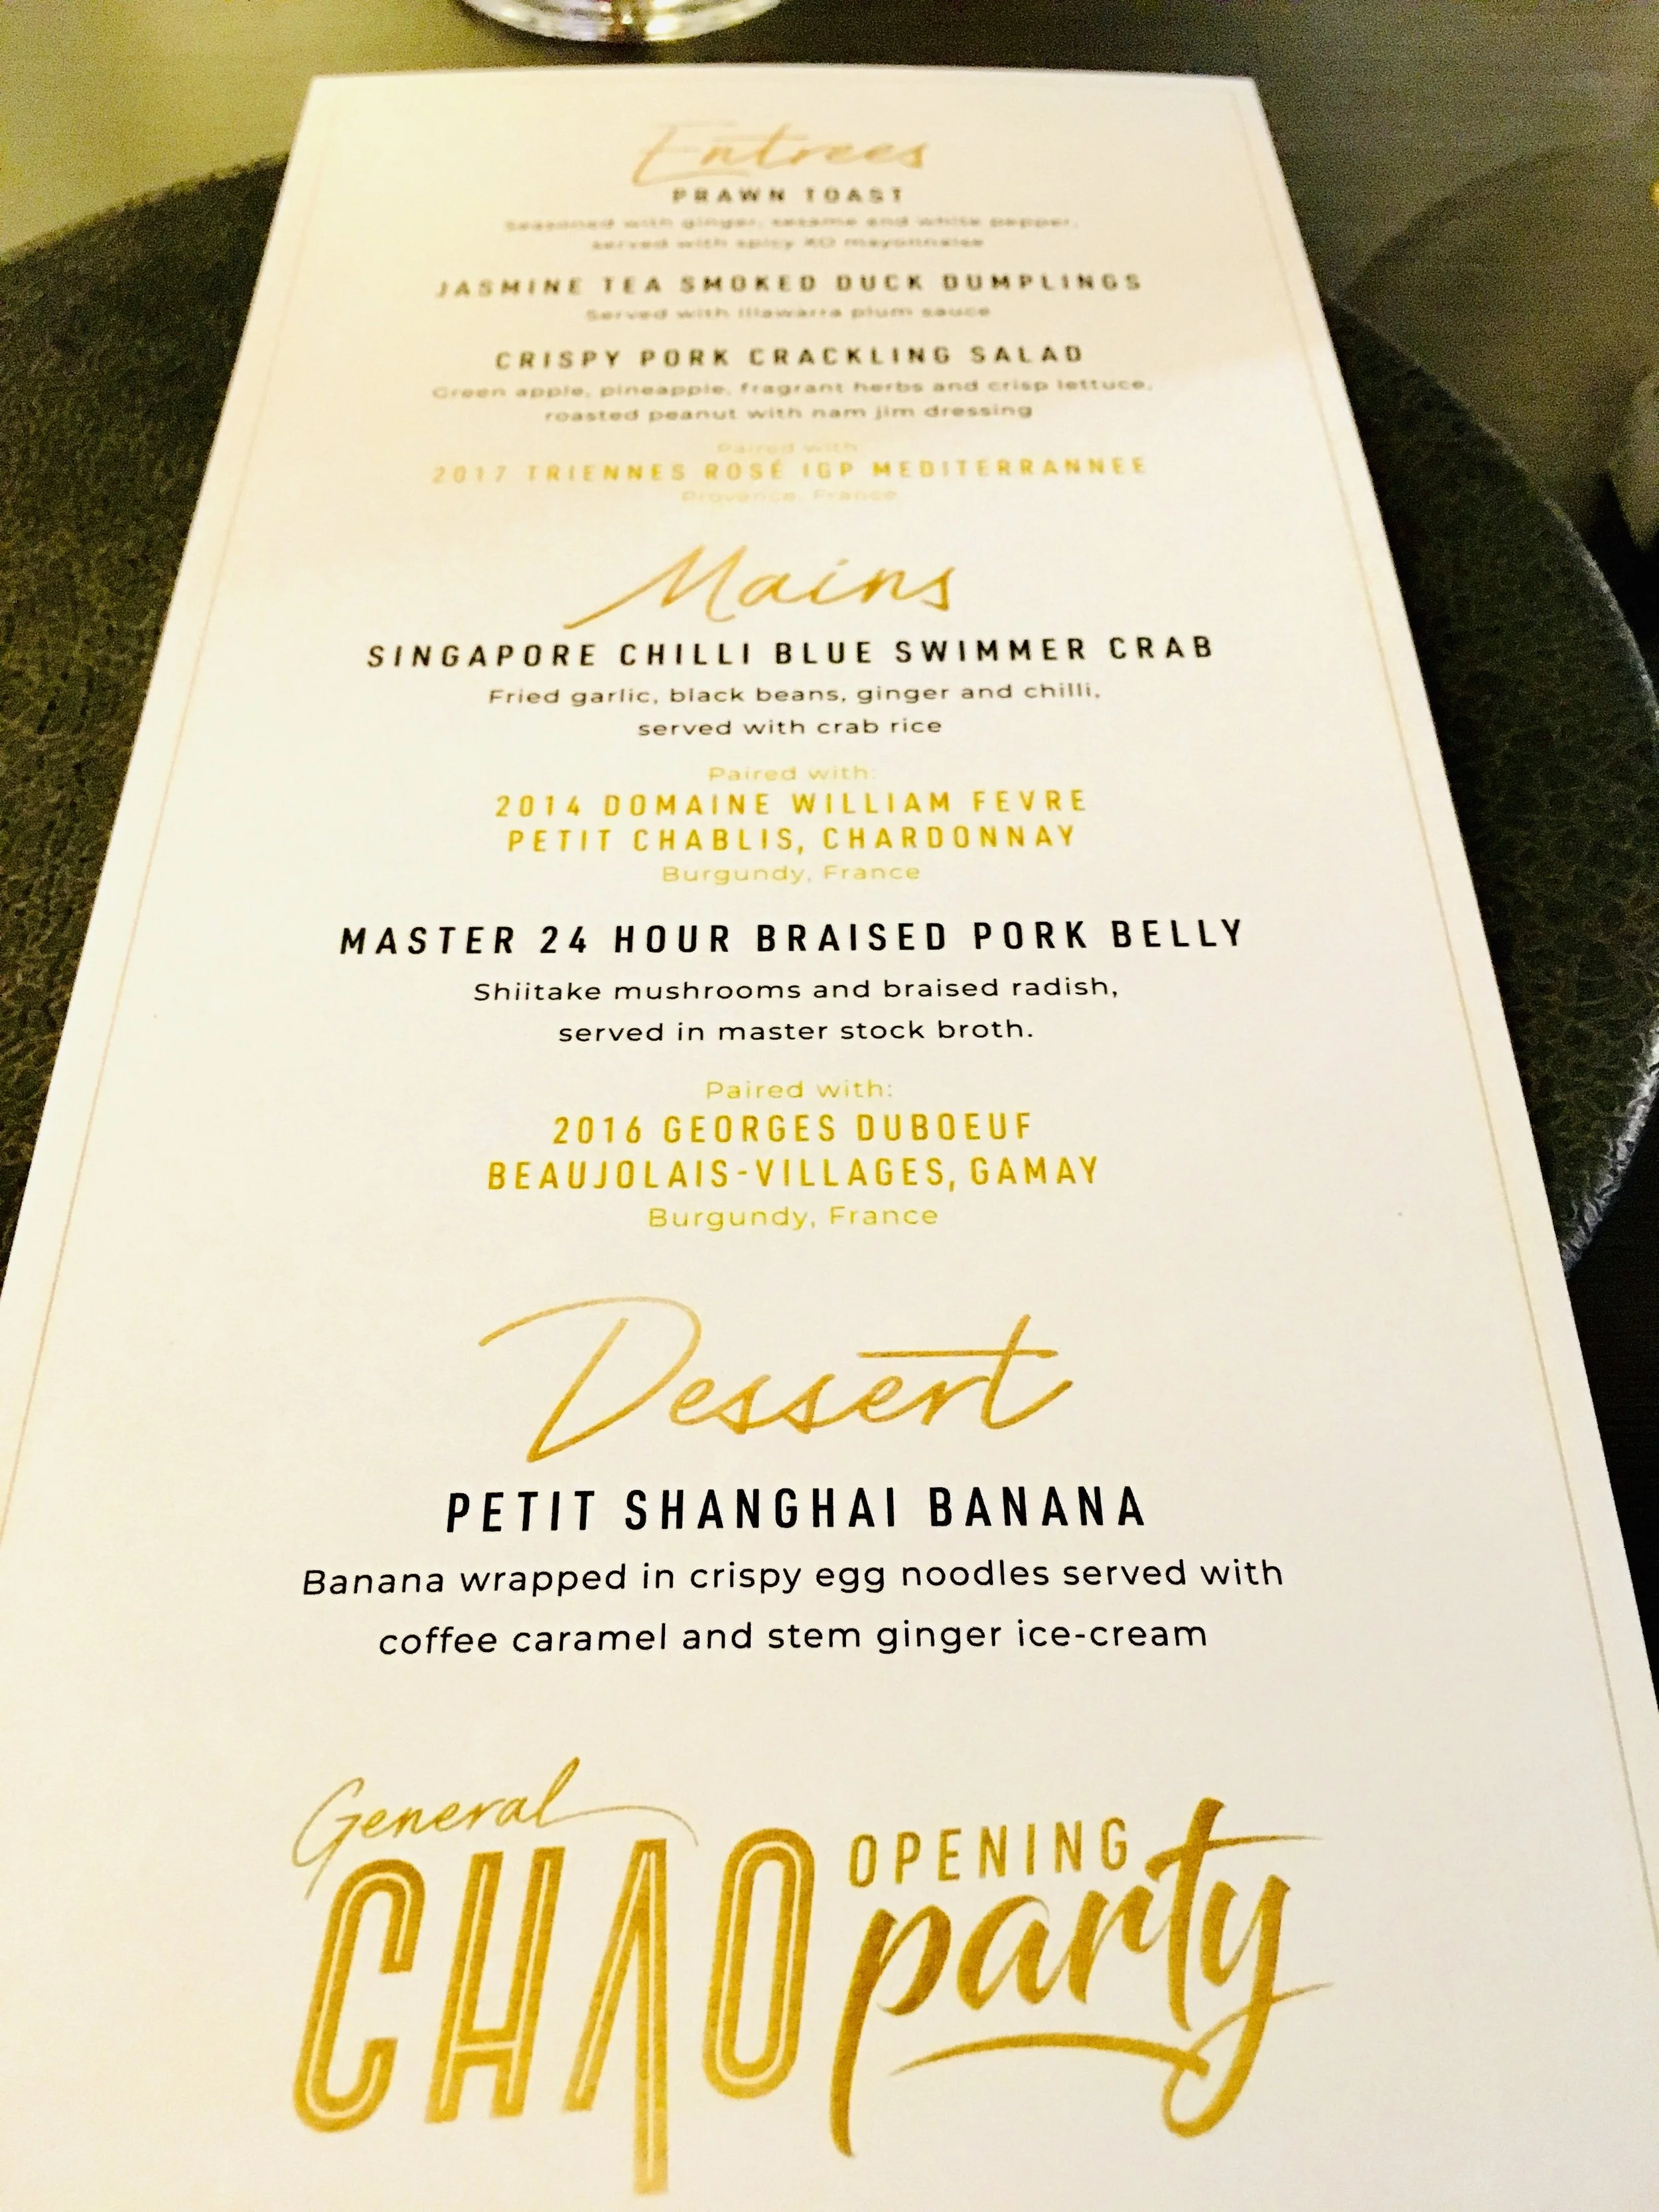 Entrees
PRAWN TOAST
Seasoned with ginger, sesame and white pepper,
served with spicy XO mayonnaise
JASMINE TEA SMOKED DUCK DUMPLINGS
Served with Illawarra plum sauce
CRISPY PORK CRACKLING SALAD
Green apple, pineapple, fragrant herbs and crisp lettuce,
roasted peanut with nam jim dressing
Paired with:
2017 TRIENNES ROSÉ IGP MEDITERRANNEE
Provence, France
Mains
SINGAPORE CHILLI BLUE SWIMMER CRAB
Fried garlic, black beans, ginger and chilli,
served with crab rice
Paired with:
2014 DOMAINE WILLIAM FEVRE
PETIT CHABLIS, CHARDONNAY
Burgundy, France
MASTER 24 HOUR BRAISED PORK BELLY
Shiitake mushrooms and braised radish,
served in master stock broth.
Paired with:
2016 GEORGES DUBOEUF
BEAUJOLAIS-VILLAGES, GAMAY
Burgundy, France
Dessert
PETIT SHANGHAI BANANA
Banana wrapped in crispy egg noodles served with
coffee caramel and stem ginger ice-cream
General
CHAO OPENING
party